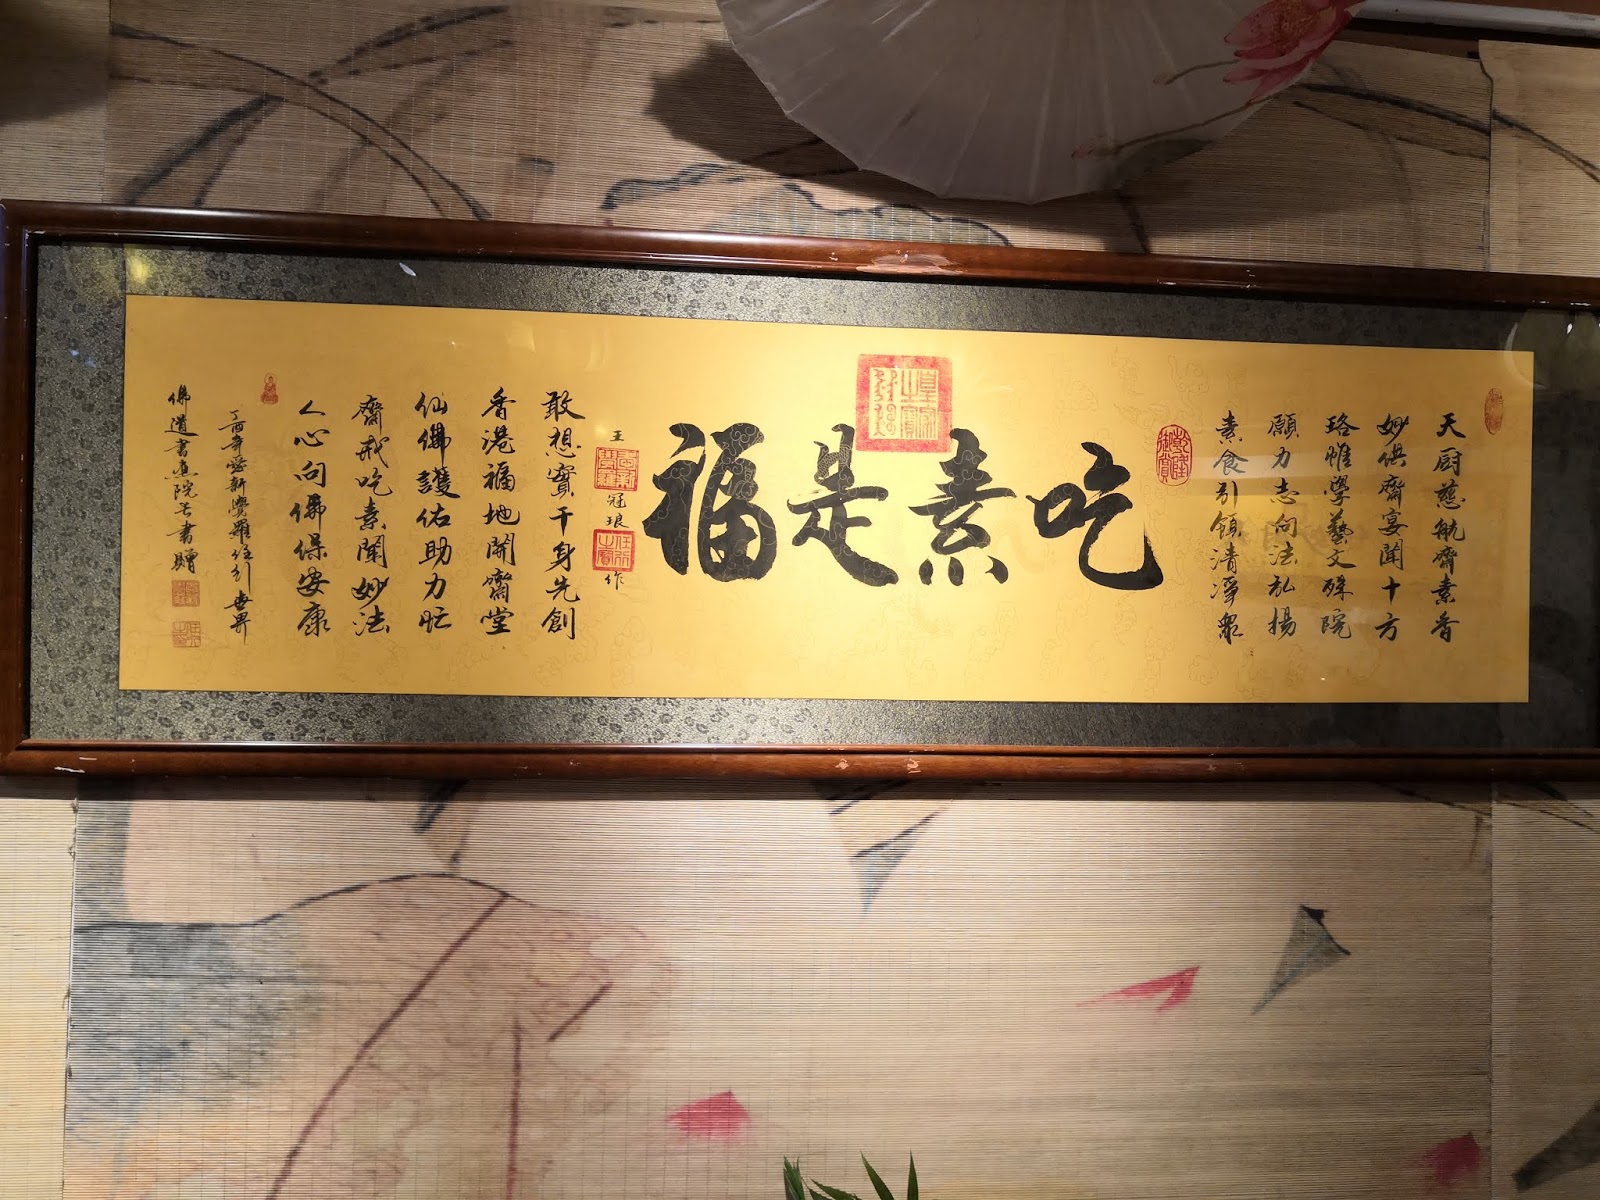 天厨慈航齋素香
妙供齋宴聞十方
珞惟學藝文殊院
願力志向法弘揚
素食引領清淨眾
乾隆御寶
吃素是福
皇家之寶
王冠琅作
敢想實干身先創
香港福地開齋堂
仙佛護佑助力忙
齋戒吃素聞妙法
人心向佛保安康
丁酉年愛新覺羅 世界
佛道書 院 書贈